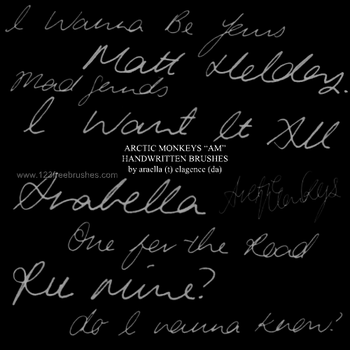 I Wanna Be Yours
Matt Helders.
Mad Sounds
I Want It All
ARCTIC MONKEYS “AM”
HANDWRITTEN BRUSHES
by araella (t) elagence (da)
www.123freebrushes.com
Arabella
Arctic Monkeys
One for the Road
R U Mine?
do I wanna know?